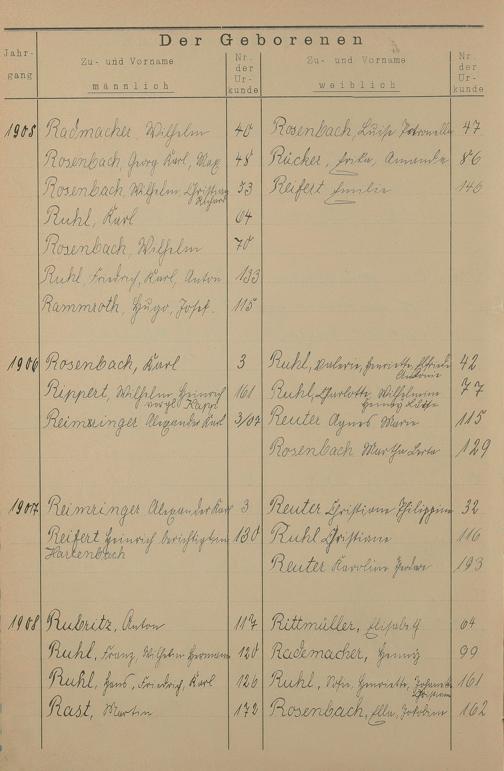 Der Geborenen
Jahr-
gang
Zu- und Vorname
männlich
Nr.
der
Ur-
kunde
Zu- und Vorname
weiblich
Nr.
der
Ur-
kunde
1905 Radmacher, Wilhelm 40 Rosenbach, Luise Petronella 47
Rosenbach, Georg Karl, Max 48 Rücker, Erika, Amanda 86
Rosenbach Wilhelm, Christian 53 Reifert Emilie 145
Richard
Ruhl, Karl 64
Rosenbach, Wilhelm 70
Ruhl, Friedrich, Karl, Anton 133
Rammroth, Hugo, Josef. 115
1906 Rosenbach, Karl 3 Ruhl, Valerie, Henriette, Elfriede 42
Antonie
Rippert, Wilhelm, Heinrich 161 Ruhl, Charlotte, Wilhelmine 77
Reimringer Alexander Karl 3/07 Reuter Agnes Marie 115
Rosenbach Martha Berta 129
1907 Reimringer Alexander Karl 3 Reuter Christiane Philippine 32
Reifert Heinrich berichtigt in 130 Ruhl Christiane 116
Hartenbach
Reuter Karoline 193
1908 Rubritz, Anton 117 Rittmüller, 64
Ruhl, Franz, Wilhelm Hermann 120 Rademacher, Henny 99
Ruhl, Hans, Friedrich, Karl 126 Ruhl, Sofie, Henriette, 161
Rast, Martin 172 Rosenbach, Ella, Jakobine 162